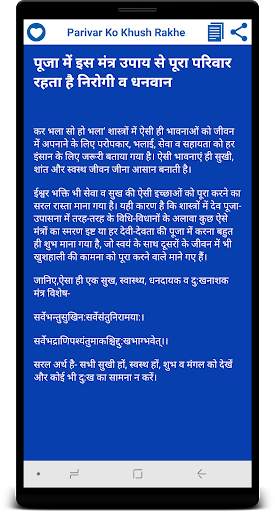 Parivar Ko Khush Rakhe
पूजा में इस मंत्र उपाय से पूरा परिवार
रहता है निरोगी व धनवान
कर भला सो हो भला' शास्त्रों में ऐसी ही भावनाओं को जीवन
में अपनाने के लिए परोपकार, भलाई, सेवा व सहायता को हर
इंसान के लिए जरूरी बताया गया है। ऐसी भावनाएं ही सुखी,
शांत और स्वस्थ जीवन जीना आसान बनाती है।
ईश्वर भक्ति भी सेवा व सुख की ऐसी इच्छाओं को पूरा करने का
सरल रास्ता माना गया है। यही कारण है कि शास्त्रों में देव पूजा-
उपासना में तरह-तरह के विधि-विधानों के अलावा कुछ ऐसे
मंत्रों का स्मरण इष्ट या हर देवी-देवता की पूजा में करना बहुत
ही शुभ माना गया है, जो स्वयं के साथ दूसरों के जीवन में भी
खुशहाली की कामना को पूरा करने वाले माने गए हैं।
जानिए,ऐसा ही एक सुख, स्वास्थ्य, धनदायक व दु:खनाशक
मंत्र विशेष-
सर्वेभन्तुसुखिन:सर्वेसंतुनिरामया:।
सर्वेभद्राणिपश्यंतुमाकश्चिद्दु:खभाग्भवेत्।।
सरल अर्थ है- सभी सुखी हों, स्वस्थ हों, शुभ व मंगल को देखें
और कोई भी दु:ख का सामना न करें।